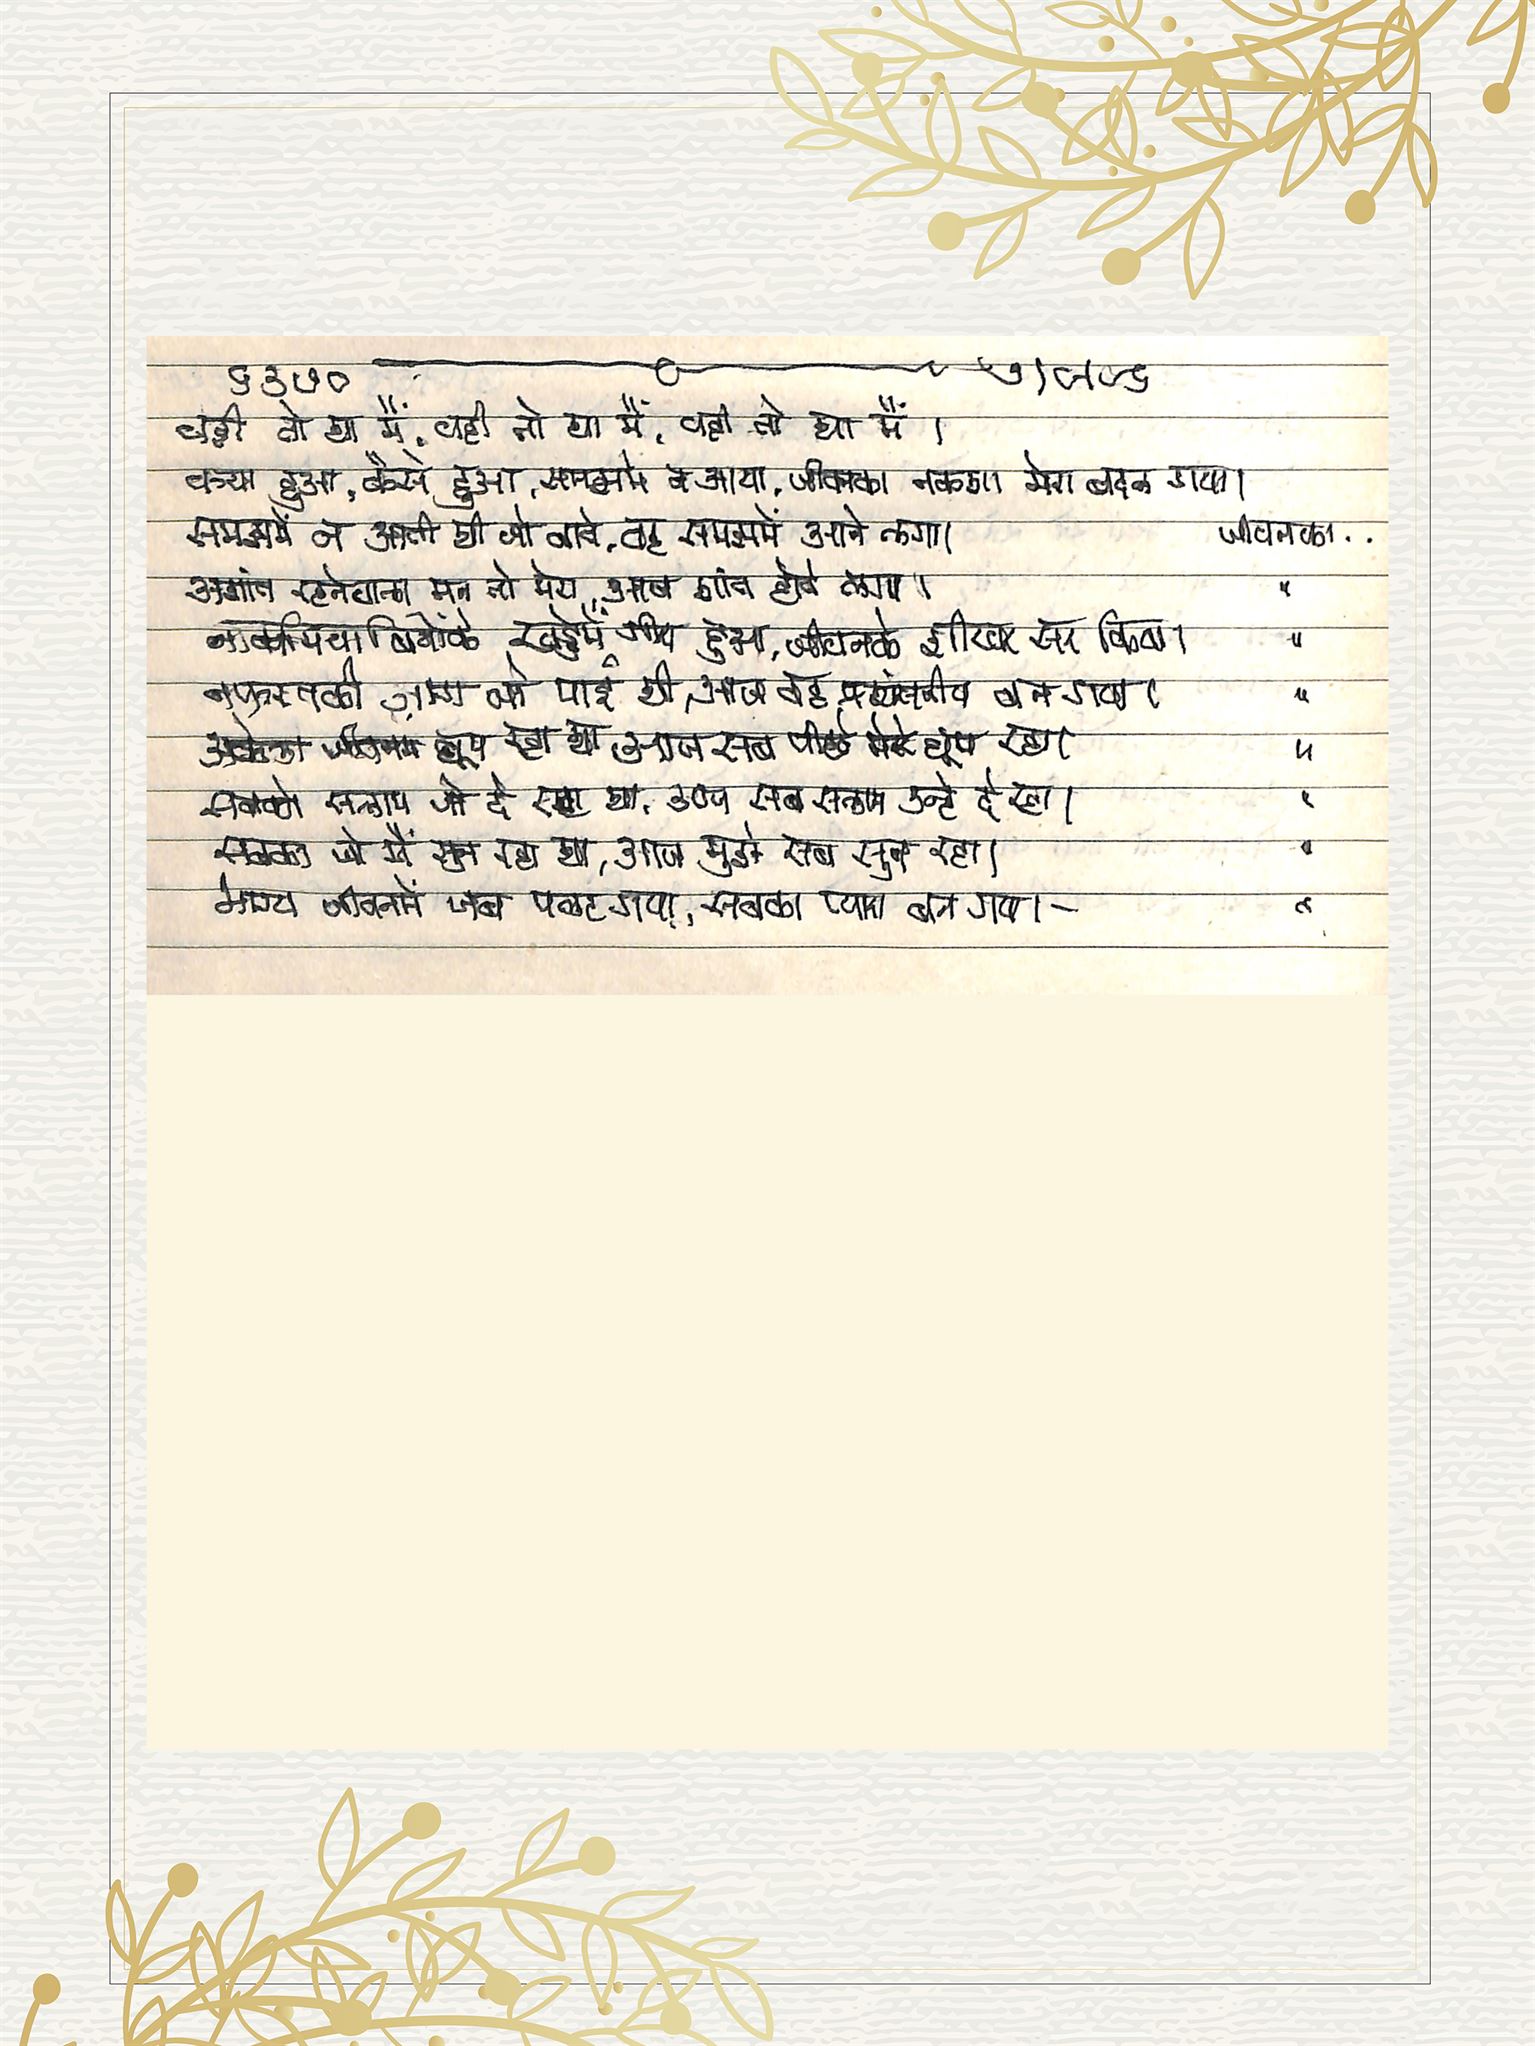 ૬૩૭૦ આનંદ
वही तो था मैं, वही तो था मैं, वही तो था मैं ।
क्या हुआ, कैसे हुआ, समझमें न आया, जीवनका नकशा मेरा बदल गया।
समझमें न आती थी जो बातें, वह समझमें आने लगा। जीवनका..
अशांत रहनेवाला मन तो मेरा, अब शांत होने लगा । "
नाकामियाबिओंके खड्डेमें गीरा हुआ, जीवनके शीखर सर किया। "
नफरतकी नजर जो पाई थी, आज वह प्रशंसनीय बन गया। "
अकेला जीवनमें घूम रहा था, आज सब पीछे मेरे घूम रहा। "
सबको सलाम जो दे रहा था, आज सब सलाम उन्हे दे रहा। "
सबका जो मैं सुन रहा था, आज मुझे सब सुन रहा। "
भाग्य जीवनमें जब पलट गया, सबका प्यारा बन गया। - "